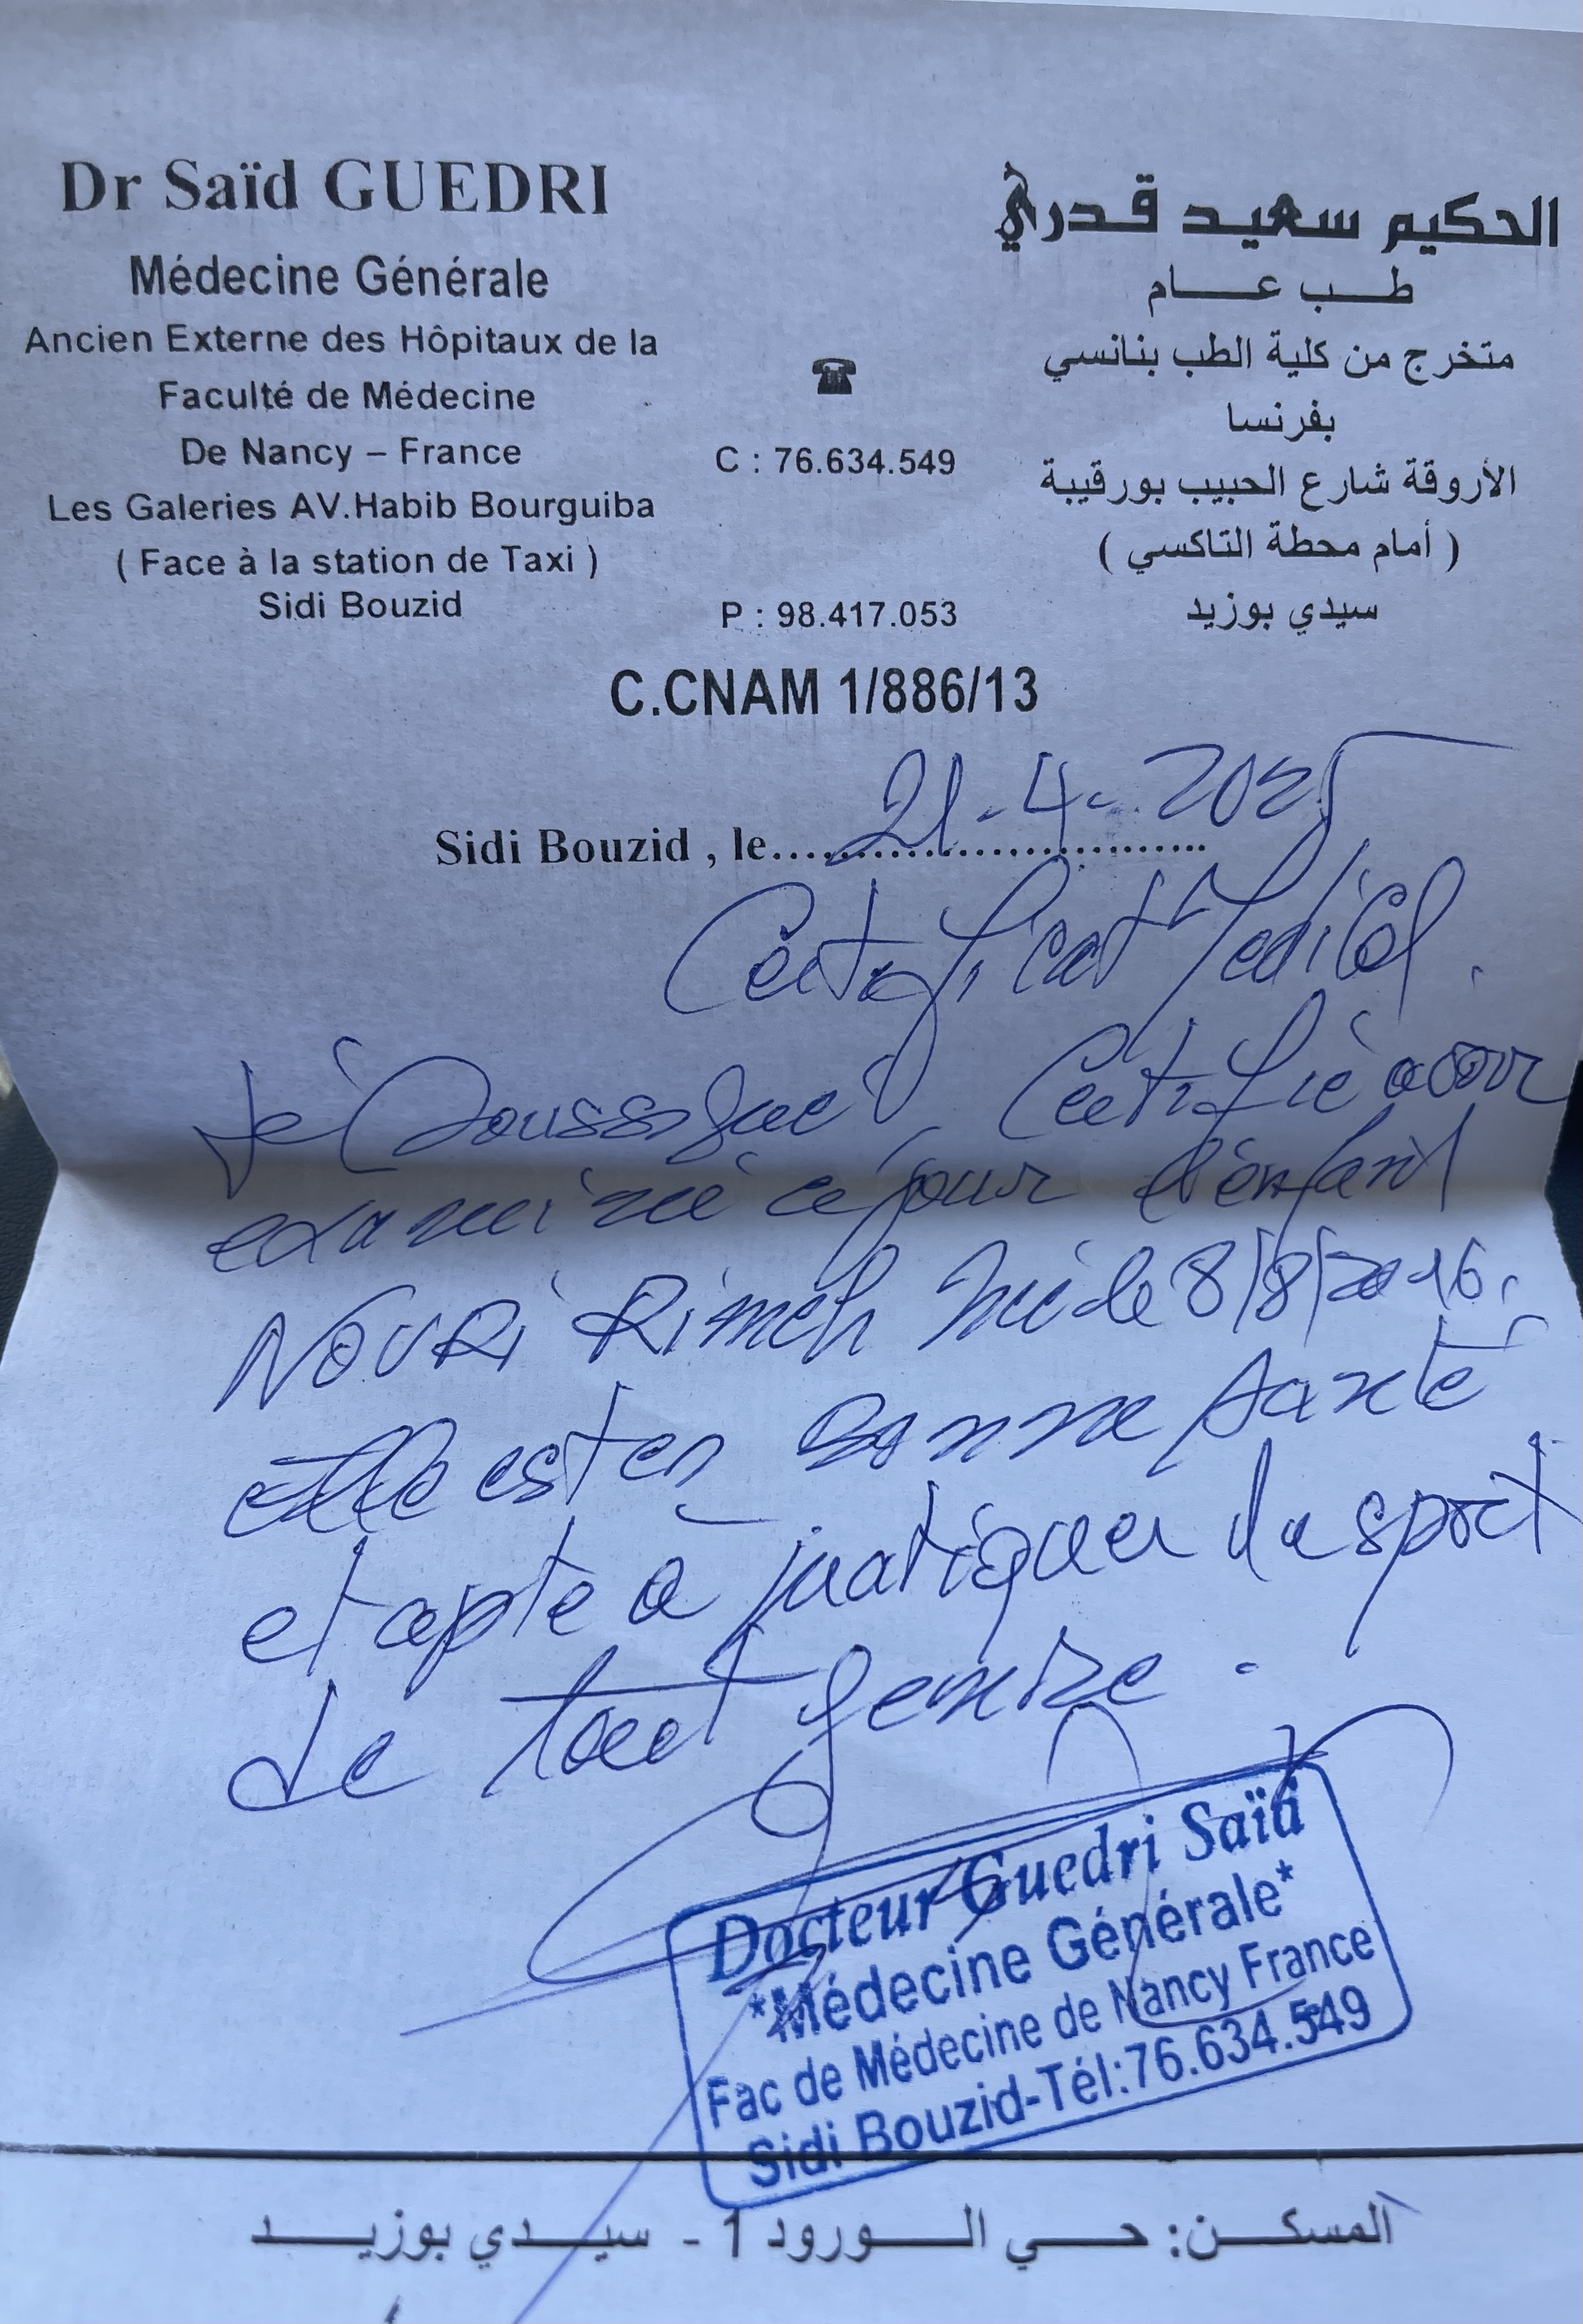 Dr Saïd GUEDRI
Médecine Générale
Ancien Externe des Hôpitaux de la
Faculté de Médecine
De Nancy – France
Les Galeries AV.Habib Bourguiba
( Face à la station de Taxi )
Sidi Bouzid
☎
C : 76.634.549
P : 98.417.053
الحكيم سعيد قدري
طب عام
متخرج من كلية الطب بنانسي
بفرنسا
الأروقة شارع الحبيب بورقيبة
( أمام محطة التاكسي )
سيدي بوزيد
C.CNAM 1/886/13
Sidi Bouzid , le 21-4-2025
Certificat Médical.
Je Soussigné, Certifié avoir
examiné ce jour l'enfant
NOURI Rimeh née le 8/8/2016.
elle est en bonne santé
et apte à pratiquer du sport
de tout genre.
Docteur Guedri Saïd
*Médecine Générale*
Fac de Médecine de Nancy France
Sidi Bouzid-Tél:76.634.549
المسكن: حي الورود 1 - سيدي بوزيد